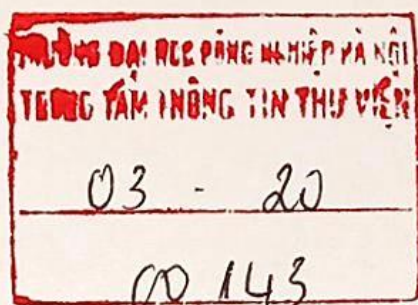 TRƯỜNG ĐẠI HỌC CÔNG NGHIỆP HÀ NỘI
TRUNG TÂM THÔNG TIN THƯ VIỆN
03 - 20
00143